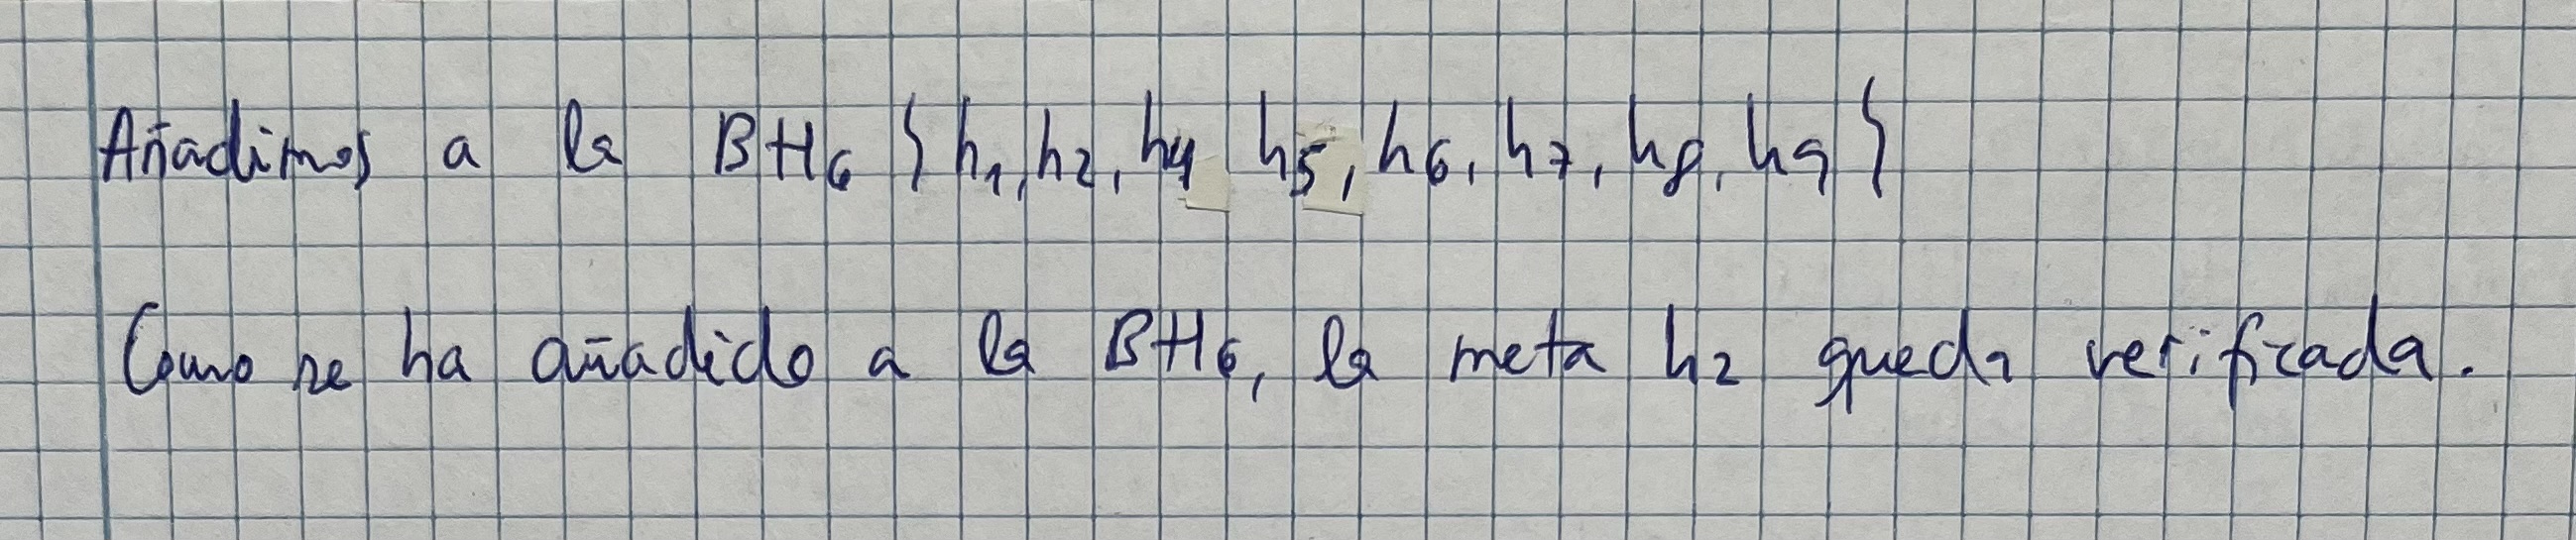 Añadimos a la BH₆ {h₁, h₂, h₄ h₅, h₆, h₇, h₈, h₉}
Como se ha añadido a la BH₆, la meta h₂ queda verificada.